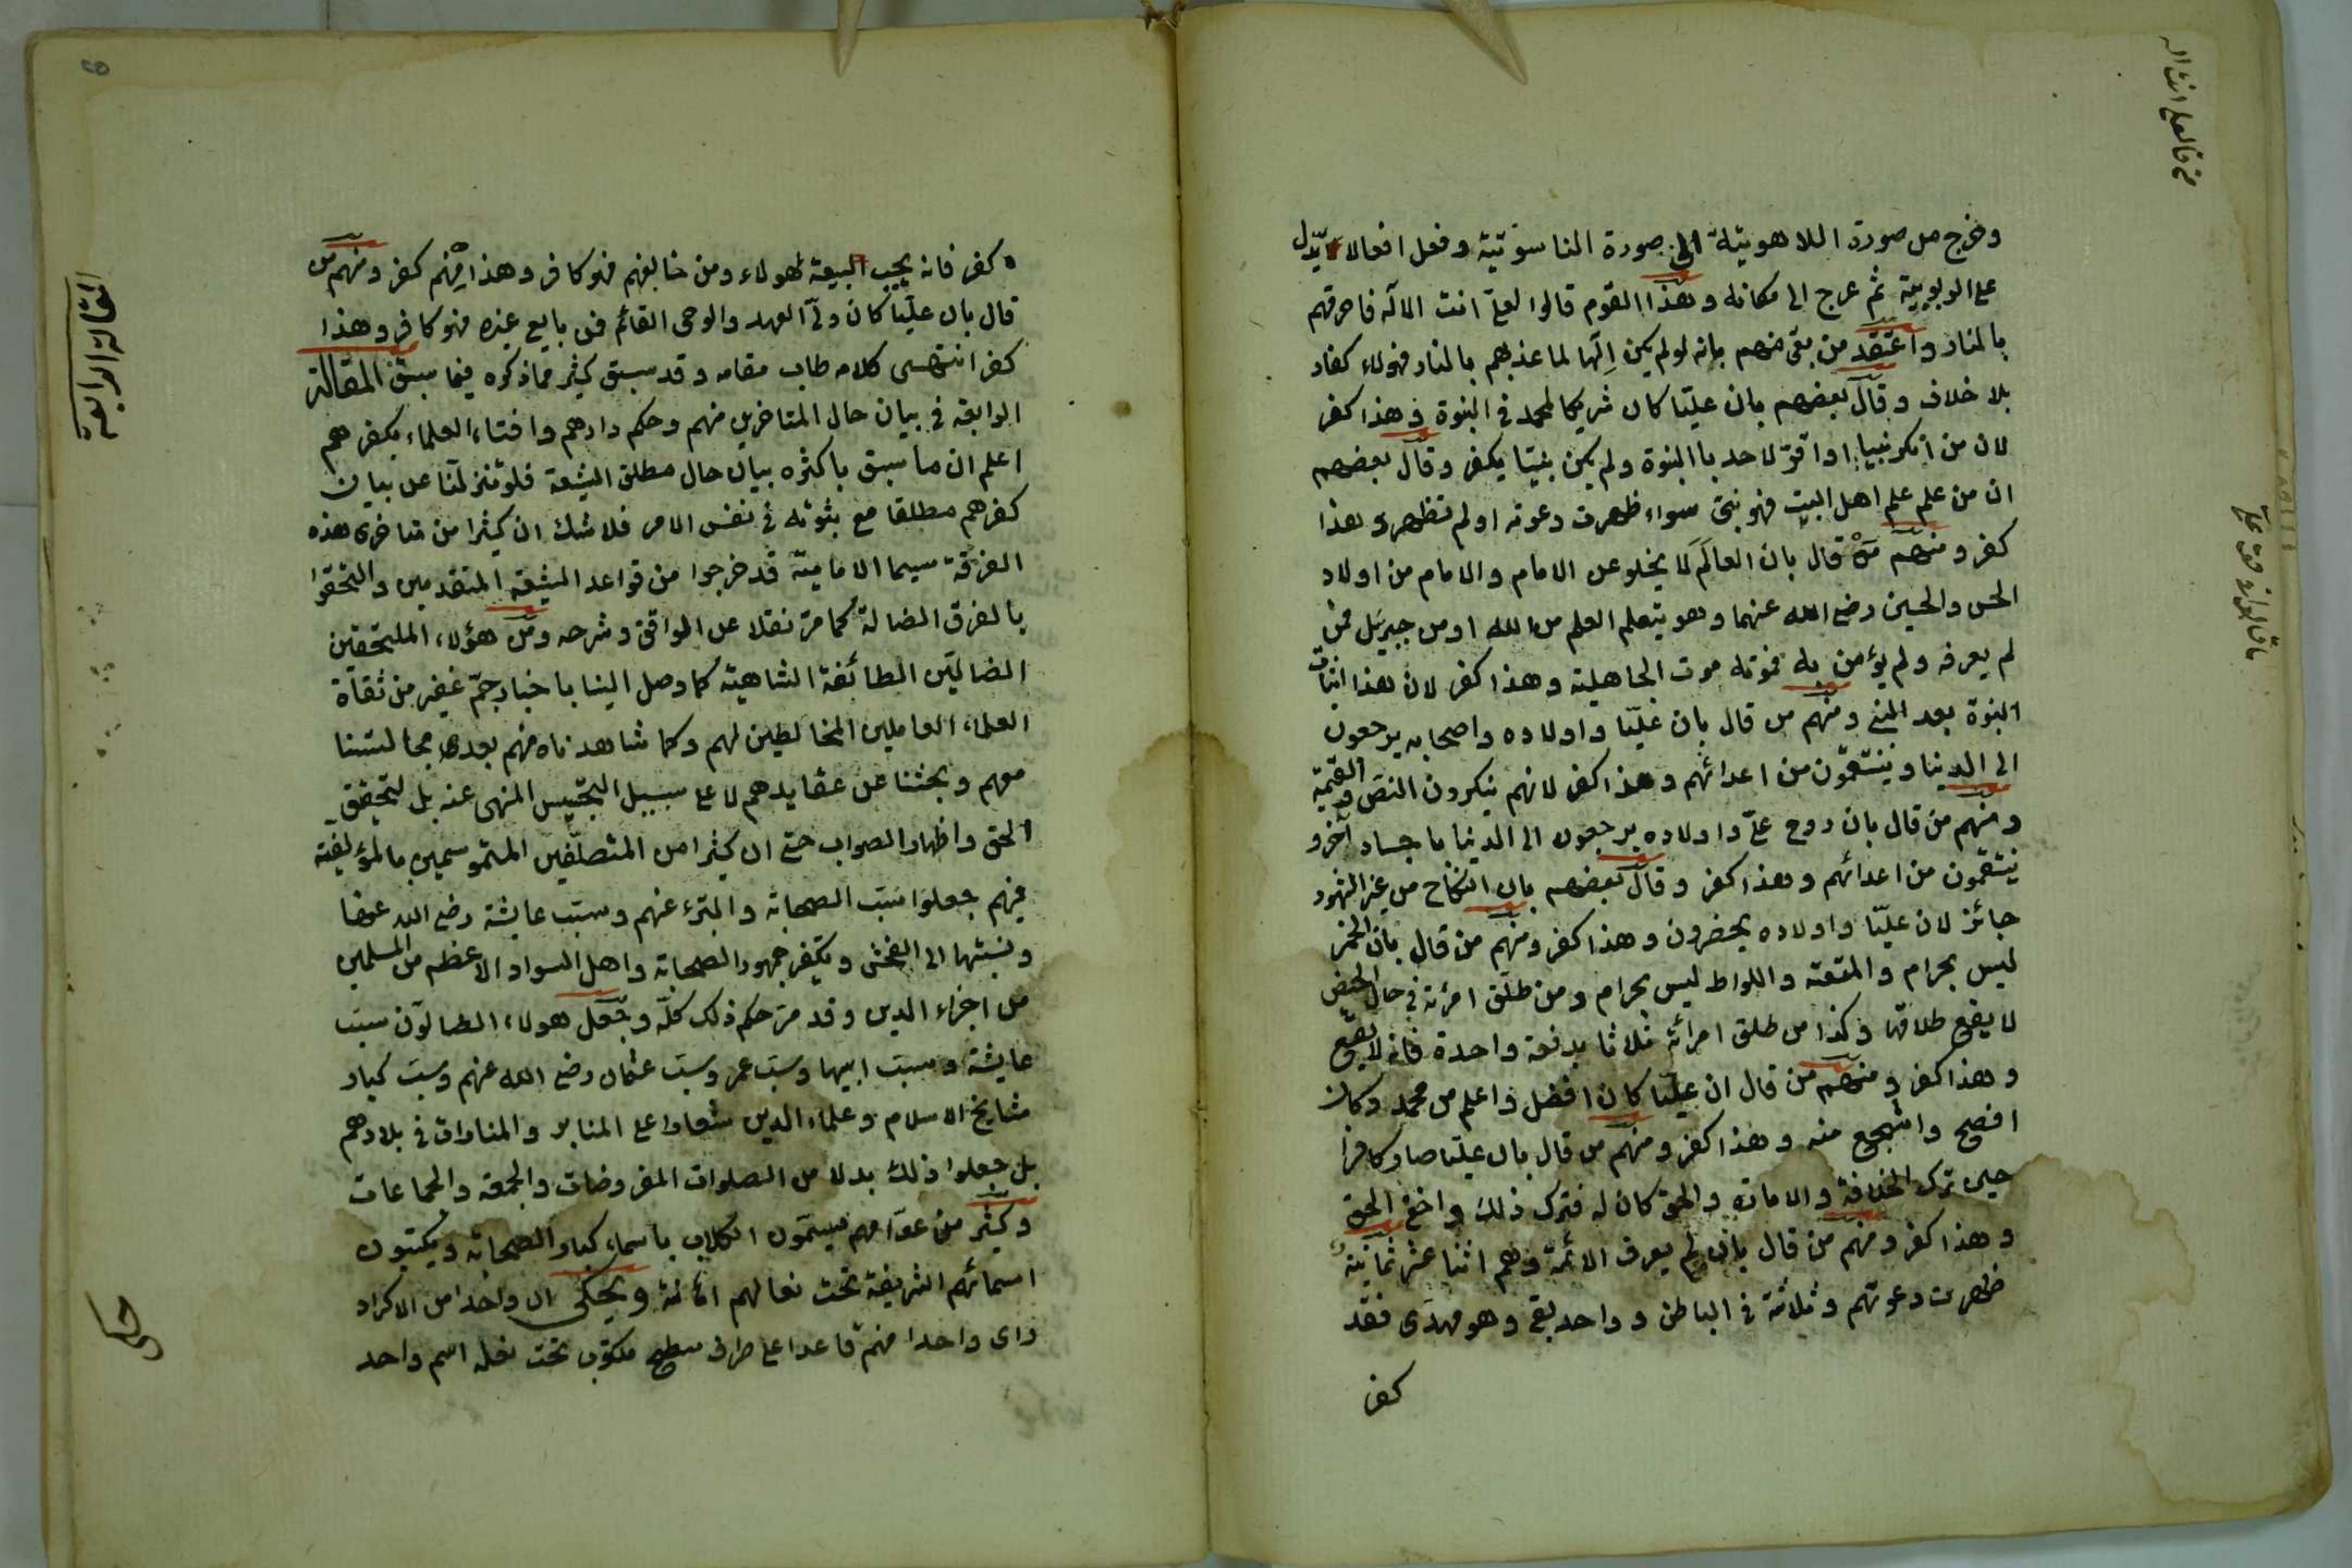 وخرج من صورة اللاهوتية الى صورة الناسوتية وفعل افعالا يدل
على الربوبية ثم عرج الى مكانه وهذا القوم قالوا لعلى انت الاله فاحرقهم
بالنار واعتقد من بقى منهم بانه لو لم يكن الها لما عذبهم بالنار فهولاء كفار
بلا خلاف وقال بعضهم بان عليا كان شريكا لمحمد في النبوة وهذا كفر
لان من انكر نبيا او اقر لاحد بالنبوة ولم يكن نبيا يكفر وقال بعضهم
ان من علم علم اهل البيت فهو نبى سواء ظهرت دعوته او لم تظهر وهذا
كفر ومنهم من قال بان العالم لا يخلو عن الامام والامام من اولاد
الحسن والحسين رضى الله عنهما وهو يتعلم العلم من الله او من جبريل فمن
لم يعرفه ولم يؤمن به فموته موت الجاهلية وهذا كفر لان هذا اثبات
النبوة بعد النبى ومنهم من قال بان عليا واولاده واصحابه يرجعون
الى الدنيا وينتقمون من اعدائهم وهذا كفر لانهم ينكرون النص والقيمية
ومنهم من قال بان روح على واولاده يرجعون الى الدنيا باجساد آخر و
ينتقمون من اعدائهم وهذا كفر وقال بعضهم بان النكاح من غير الشهود
جائز لان عليا واولاده يحضرون وهذا كفر ومنهم من قال بان الخمر
ليس بحرام والمتعة واللواط ليس بحرام ومن طلق امرئة في حال الحيض
لا يقع طلاقها وكذا من طلق امرائة ثلاثا بدفعة واحدة فانه لا يقع
وهذا كفر ومنهم من قال ان عليا كان افضل واعلم من محمد وكان
افصح واشجع منه وهذا كفر ومنهم من قال بان عليا صار كافرا
حين ترك الخلافة والامامة والحق كان له فترك ذلك واخفى الحق
وهذا كفر ومنهم من قال بان لم يعرف الائمة وهم اثنا عشر ثمانية
ظهرت دعوتهم وثلاثة في الباطن وواحد بقى وهو مهدى فقد
كفر
كفر فانه يجب البيعة لهولاء ومن خالفهم فهو كافر وهذا منهم كفر ومنهم من
قال بان عليا كان ولى العهد والوحى القائم فمن بايع غيره فهو كافر وهذا
كفر انتهى كلامه طاب مقامه وقد سبق كثير مما ذكره فيما سبق المقالة
الرابعة في بيان حال المتاخرين منهم وحكم دارهم وافتاء العلماء بكفرهم
اعلم ان ما سبق باكثره بيان حال مطلق الشيعة فلو تنزلنا عن بيان
كفرهم مطلقا مع ثبوته في نفس الامر فلا شك ان كثيرا من متاخرى هذه
الفرقة سيما الامامية قد خرجوا من قواعد الشيعة المتقدمين والتحقوا
بالفرق الضالة كما مر نقلا عن المواقف وشرحه ومن هؤلاء الملتحقين
الضالين الطائفة الشاهية كما وصل الينا باخبار جم غفير من ثقاة
العلماء العاملين المخالطين لهم وكما شاهدناه منهم بعدها مجالستنا
معهم وبحثنا عن عقايدهم لا على سبيل التجسس المنهى عنه بل لتحقيق
الحق واظهار الصواب حتى ان كثيرا من المتصلفين المتوسمين بالمؤلفية
فيهم جعلوا سب الصحابة والتبرء عنهم وسب عايشة رضى الله عنها
ونسبتها الى الفحش وتكفير جمهور الصحابة واهل السواد الاعظم من المسلمين
من اجزاء الدين وقد مر حكم ذلك كله وجعل هولاء الضالون سب
عايشة وسب ابيها وسب عمر وسب عثمان رضى الله عنهم وسب كبار
مشايخ الاسلام وعلماء الدين شعارا على المنابر والمنارات في بلادهم
بل جعلوا ذلك بدلا من الصلوات المفروضات والجمعة والجماعات
وكثير من عوامهم يسمون الكلاب باسماء كبار الصحابة ويكتبون
اسمائهم الشريفة تحت نعالهم اهانة ويحكى ان واحدا من الاكراد
راى واحدا منهم قاعدا على طرف سطح مكتوب تحت نعله اسم واحد
المقالة الرابعة